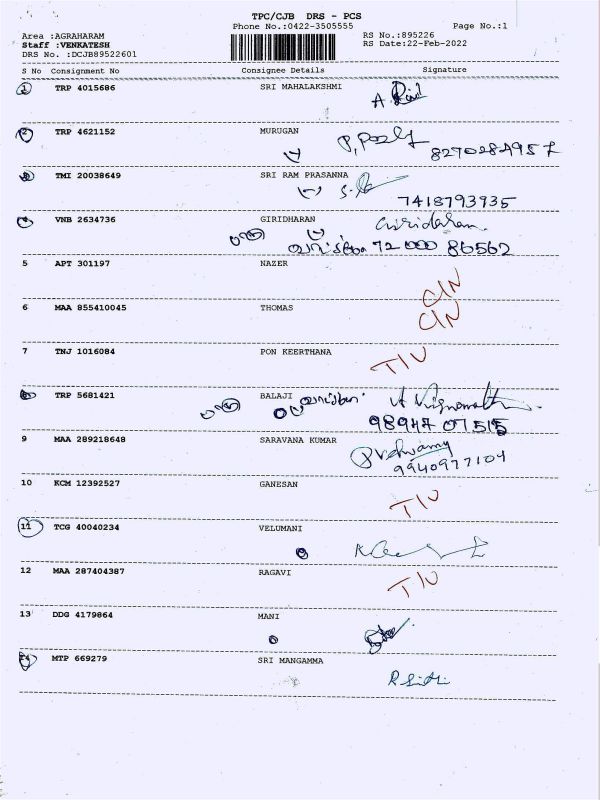 TPC/CJB DRS - PCS
Phone No.:0422-3505555 Page No.:1
Area :AGRAHARAM RS No.:895226
Staff :VENKATESH RS Date:22-Feb-2022
DRS No. :DCJB89522601
S No Consignment No Consignee Details Signature
1 TRP 4015686 SRI MAHALAKSHMI
2 TRP 4621152 MURUGAN
3 TMI 20038649 SRI RAM PRASANNA
7418793935
4 VNB 2634736 GIRIDHARAN Giridharan.
72000 86562
5 APT 301197 NAZER C/N
6 MAA 855410045 THOMAS C/N
7 TNJ 1016084 PON KEERTHANA T/U
8 TRP 5681421 BALAJI
98947 07515
9 MAA 289218648 SARAVANA KUMAR
9940977104
10 KCM 12392527 GANESAN T/U
11 TCG 40040234 VELUMANI
12 MAA 287404387 RAGAVI T/U
13 DDG 4179864 MANI
14 MTP 669279 SRI MANGAMMA